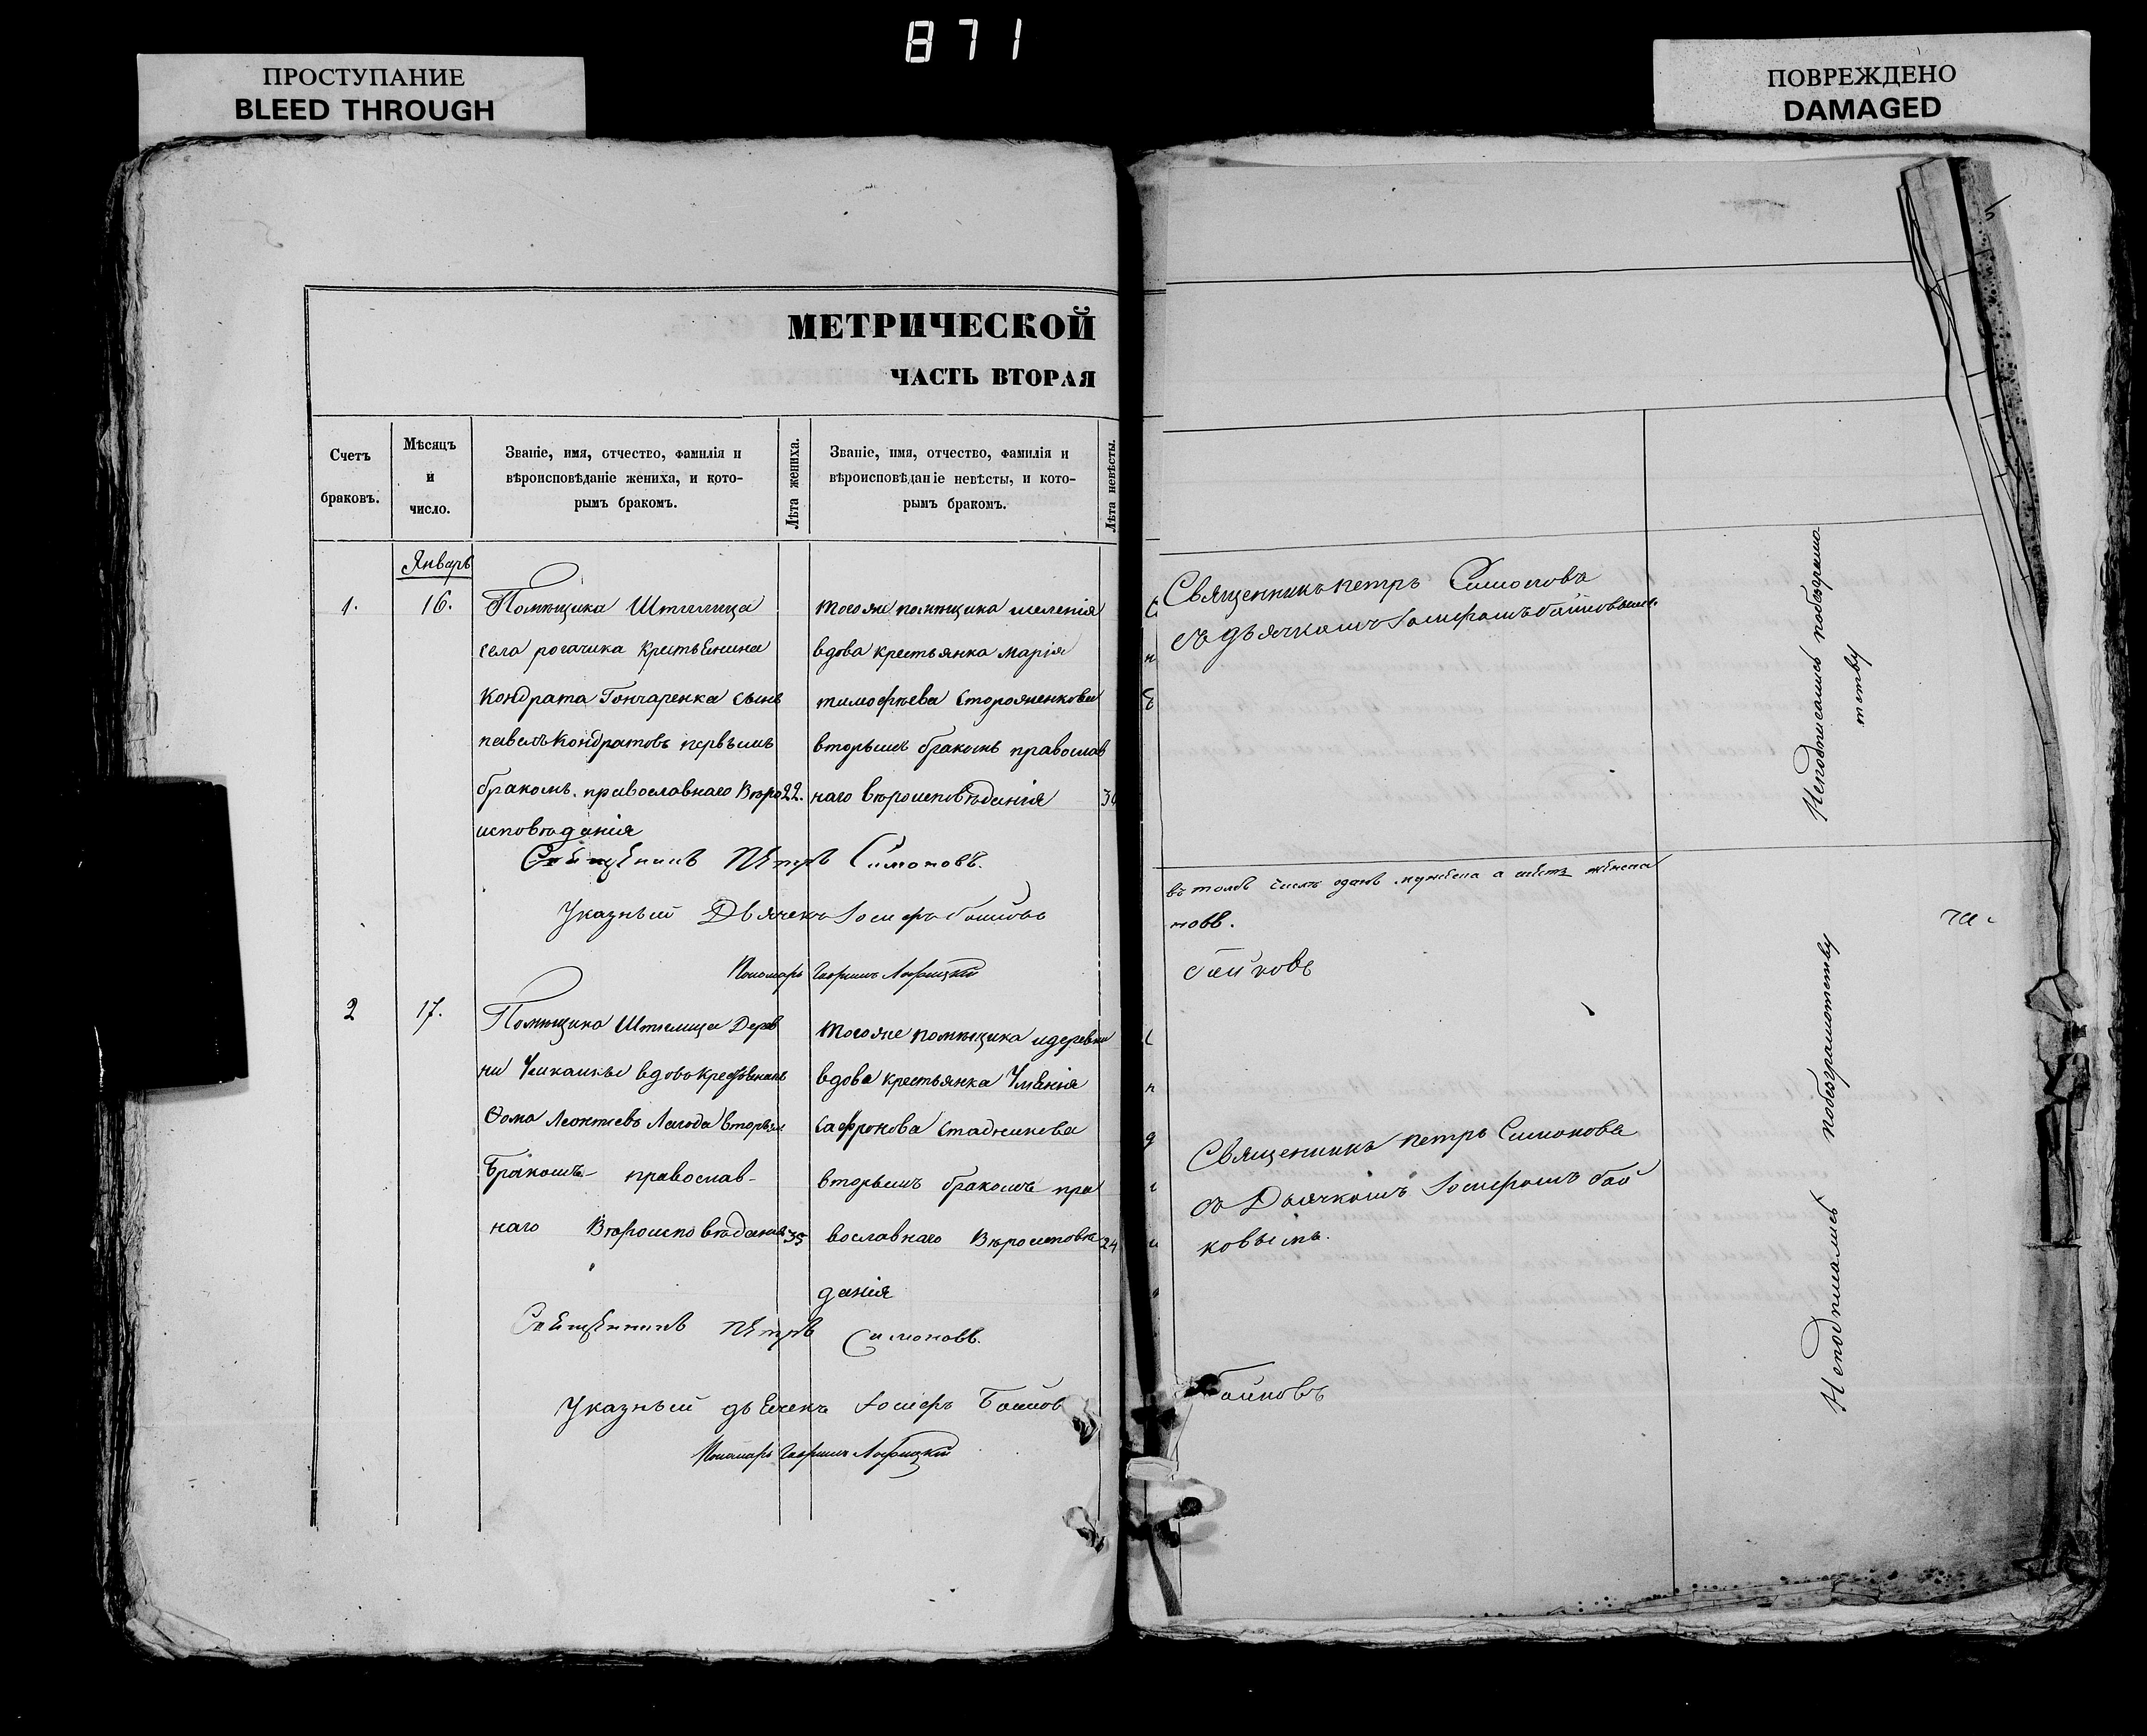 871
ПРОСТУПАНИЕ
BLEED THROUGH
ПОВРЕЖДЕНО
DAMAGED
МЕТРИЧЕСКОЙ
ЧАСТЬ ВТОРАЯ
Счетъ браковъ.
Мѣсяцъ и число.
Званіе, имя, отчество, фамилія и
вѣроисповѣданіе жениха, и кото-
рымъ бракомъ.
Лѣта жениха.
Званіе, имя, отчество, фамилія и
вѣроисповѣданіе невѣсты, и кото-
рымъ бракомъ.
Лѣта невѣсты.
Январь
1.
16.
Помѣщика Штиглица
села рогачика крестьянина
Кондрата Гончаренка сынъ
павелъ Кондратовъ первымъ
бракомъ. православнаго Вѣро
исповѣданія
22.
тогоже помѣщика имѣнія
вдова крестьянка Марія
тимофѣева Стороженкова
вторымъ бракомъ православ
наго вѣроисповѣданія
Священникъ Петръ Симоновъ.
Указный Дьячекъ Іосифъ Байковъ
Пономарь
2
17.
Помѣщика Штиглица Дерев
ни вдовъ крестьянинъ
Фома Леонтьевъ Лагода вторым
Бракомъ православ-
наго Вѣроисповѣданія
35
тогоже помѣщика идеревни
вдова крестьянка
Сафронова Стадникова
вторымъ бракомъ пра
вославнаго Вѣроисповѣ
данія
24
Священникъ Петръ Симоновъ.
Указный дьячекъ Іосифъ Байков
Пономарь
Священникъ петръ Симоновъ
съ дьячкомъ Іосифомъ байковымъ.
Неподписались побезграмо
тству
въ томъ числѣ одинъ а
новъ.
байковъ
Священникъ петръ Симоновъ
съ Дьячкомъ Іосифомъ бай
ковымъ.
Неподписались побезграмотству
Байковъ
5